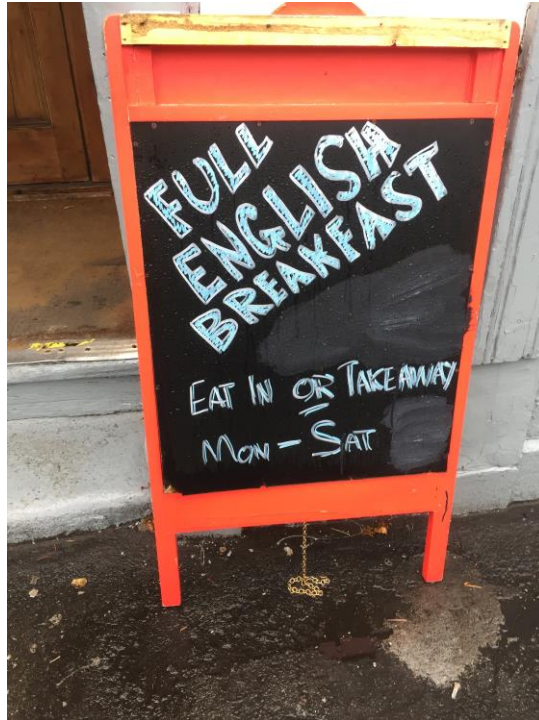 FULL
ENGLISH
BREAKFAST
EAT IN OR TAKEAWAY
MON - SAT